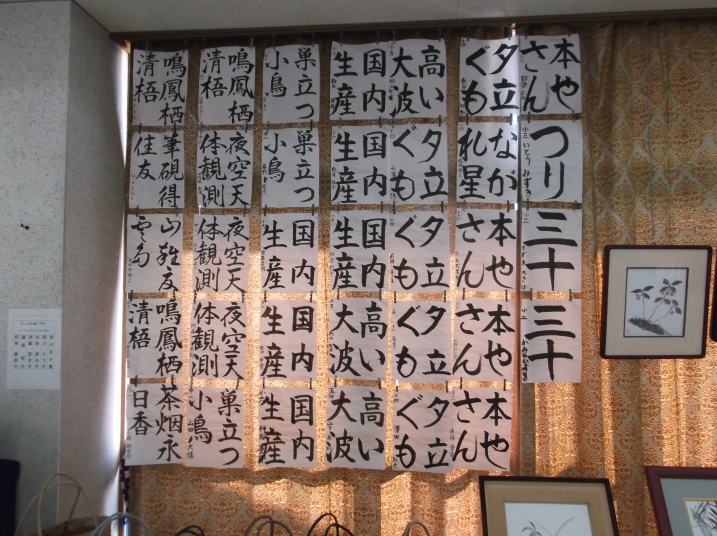 本や
さん
つり
小三 いとう みずき
三十
三十
夕立
ぐも
なが
れ星
本や
さん
本や
さん
本や
さん
高い
大波
夕立
ぐも
夕立
ぐも
夕立
ぐも
夕立
ぐも
国内
生産
国内
生産
国内
生産
高い
大波
高い
大波
巣立つ
小鳥
巣立つ
小鳥
国内
生産
国内
生産
国内
生産
鳴鳳栖
清梧
夜空天
体観測
夜空天
体観測
夜空天
体観測
巣立つ
小鳥
鳴鳳栖
清梧
筆硯得
佳友
鳴鳳栖
清梧
茶烟永
日香